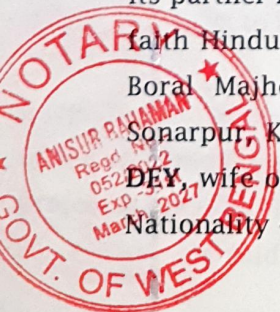 faith Hindu
Boral Majh
Sonarpur, K
DEY, wife o
Nationality
NOTARY
ANISUR RAHAMAN
Regd.
Exp
March, 2027
GOVT. OF WEST BENGAL